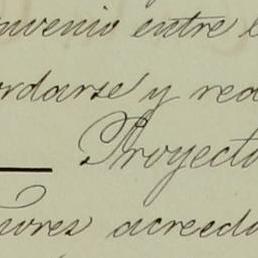 nvenio entre l
rdarse y red
Proyecto
ores acreedo